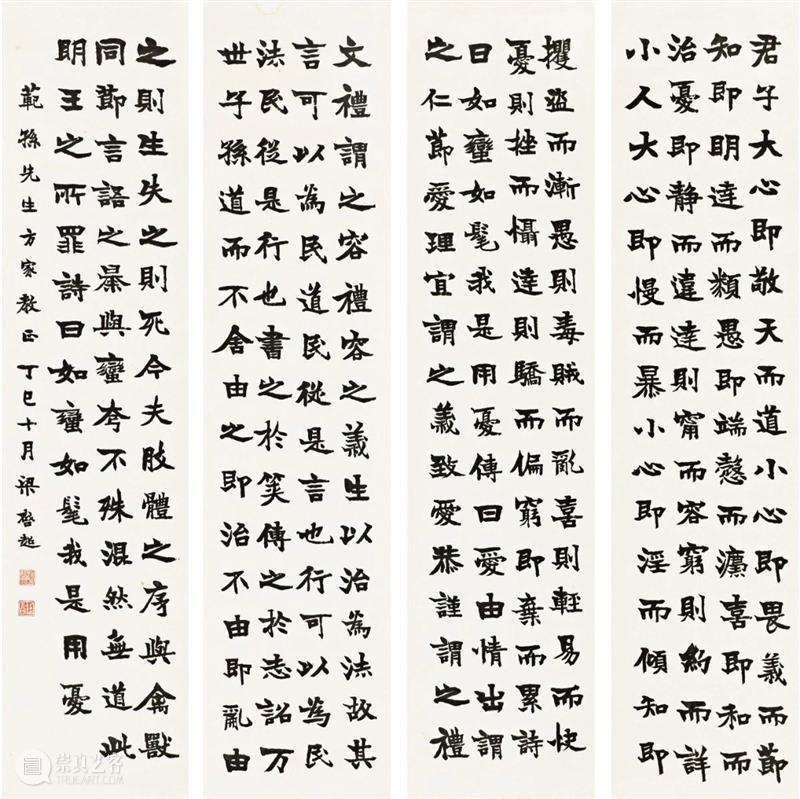 君子大心即敬天而道小心即畏義而節
知即明達而類愚即端愨而灋喜即和而
治憂即静而違達則甯而容窮則約而詳
小人大心即慢而暴小心即淫而傾知即
攫盜而漸愚則毒賊而亂喜則輕易而快
憂則挫而懾達則驕而偏窮即棄而累詩
曰如蠻如髦我是用憂傳曰愛由情出謂
之仁節愛理宜謂之義致愛恭謹謂之禮
文禮謂之容禮容之義生以治為法故其
言可以為民道民從是言也行可以為民
法民從是行也書之於筴傳之於志詔万
世子孫道而不舍由之即治不由即亂由
之則生失之則死今夫肢體之序與禽獸
同節言語之暴與蠻夸不殊混然無道此
明王之所罪詩曰如蠻如髦我是用憂
範孫先生方家教正 丁巳十月 梁啓超
崇真艺客
TRUEART.COM